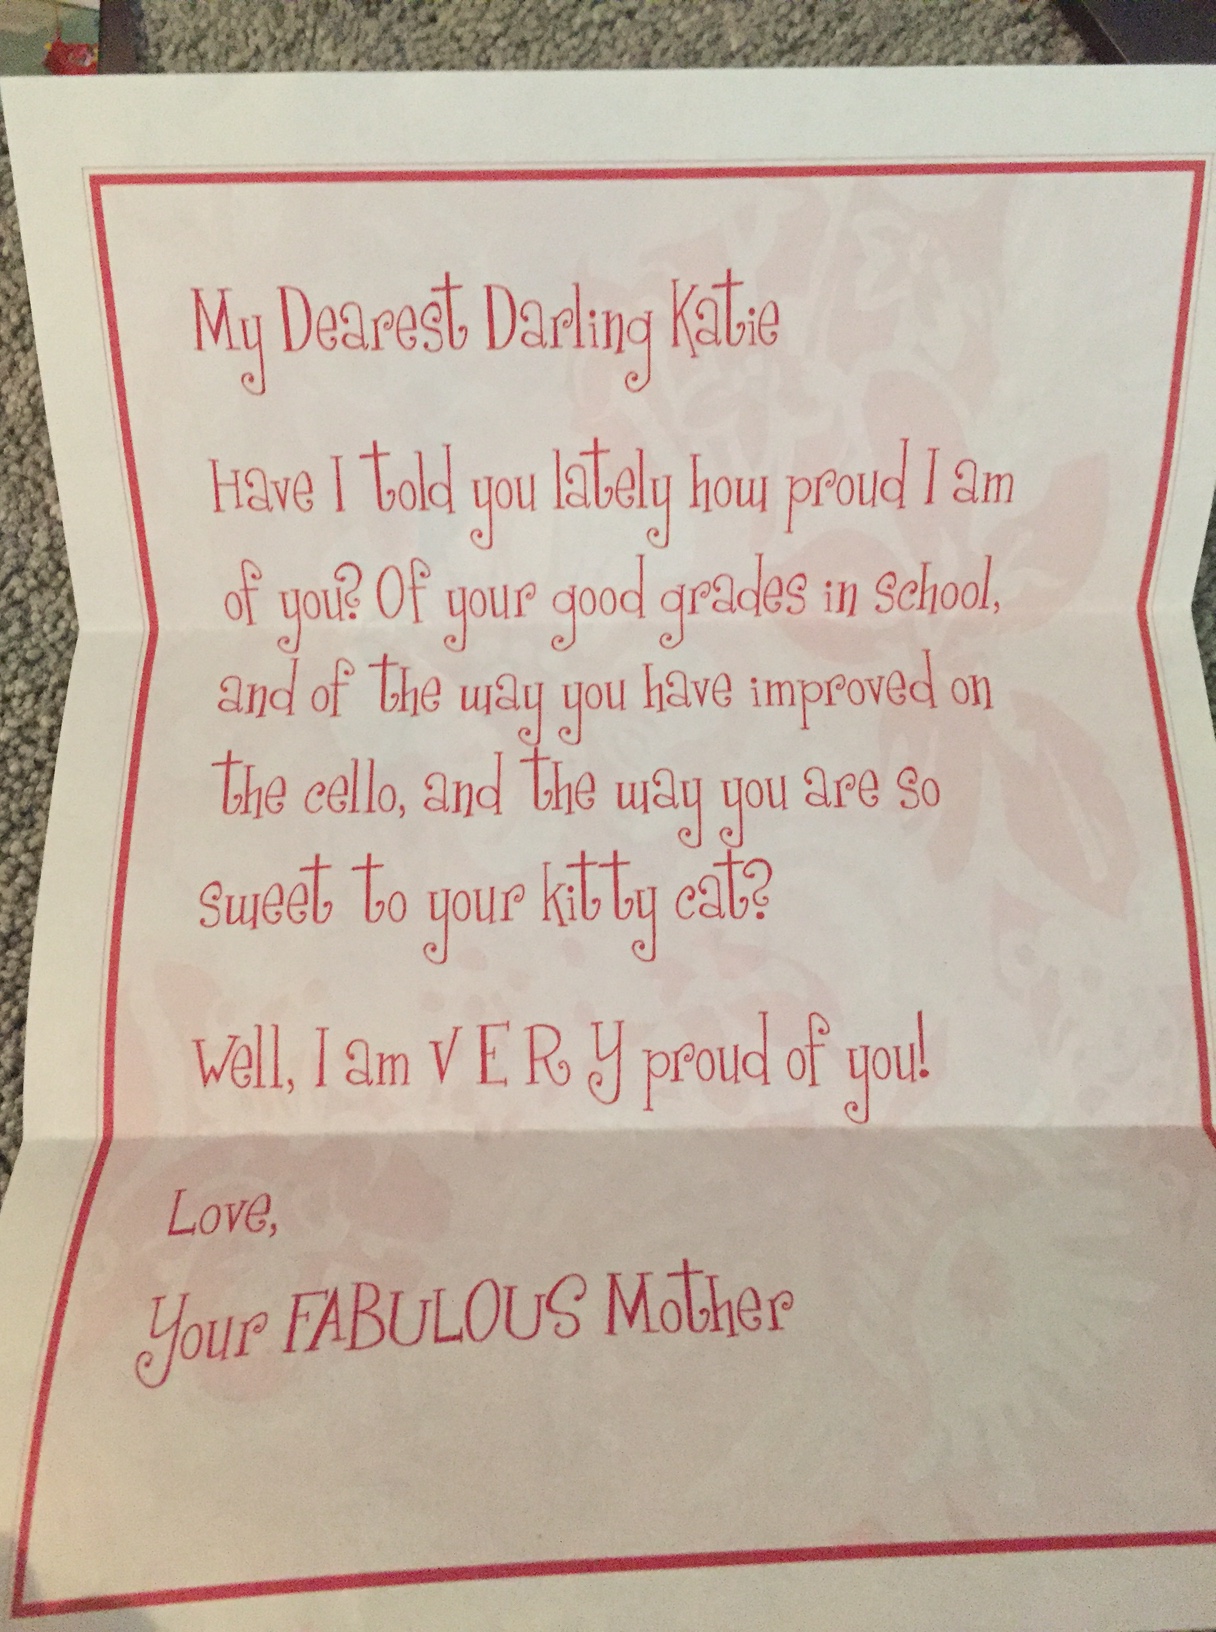 My Dearest Darling Katie
Have I told you lately how proud I am
of you? Of your good grades in school,
and of the way you have improved on
the cello, and the way you are so
sweet to your kitty cat?
Well, I am V E R Y proud of you!
Love,
Your FABULOUS Mother